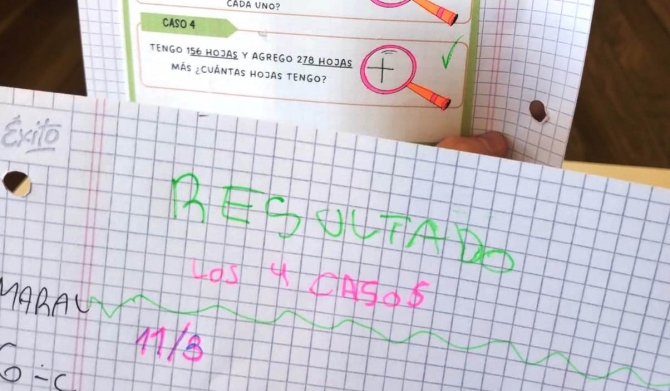 CADA UNO?
CASO 4
TENGO 156 HOJAS Y AGREGO 278 HOJAS
MÁS ¿CUÁNTAS HOJAS TENGO?
+
Éxito
RESULTADO
LOS 4 CASOS
MARAV
11/8
6÷